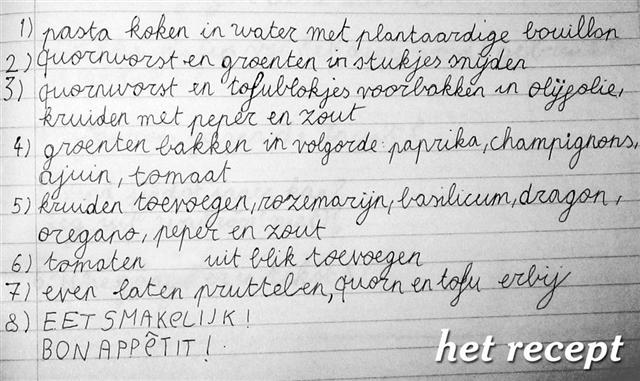 1) pasta koken in water met plantaardige bouillon
2) quornworst en groenten in stukjes snijden
3) quornworst en tofublokjes voorbakken in olijfolie,
kruiden met peper en zout
4) groenten bakken in volgorde: paprika, champignons,
ajuin, tomaat
5) kruiden toevoegen, rozemarijn, basilicum, dragon,
oregano, peper en zout
6) tomaten uit blik toevoegen
7) even laten pruttelen, quorn en tofu erbij
8) EET SMAKELIJK!
BON APPÊTIT!
het recept